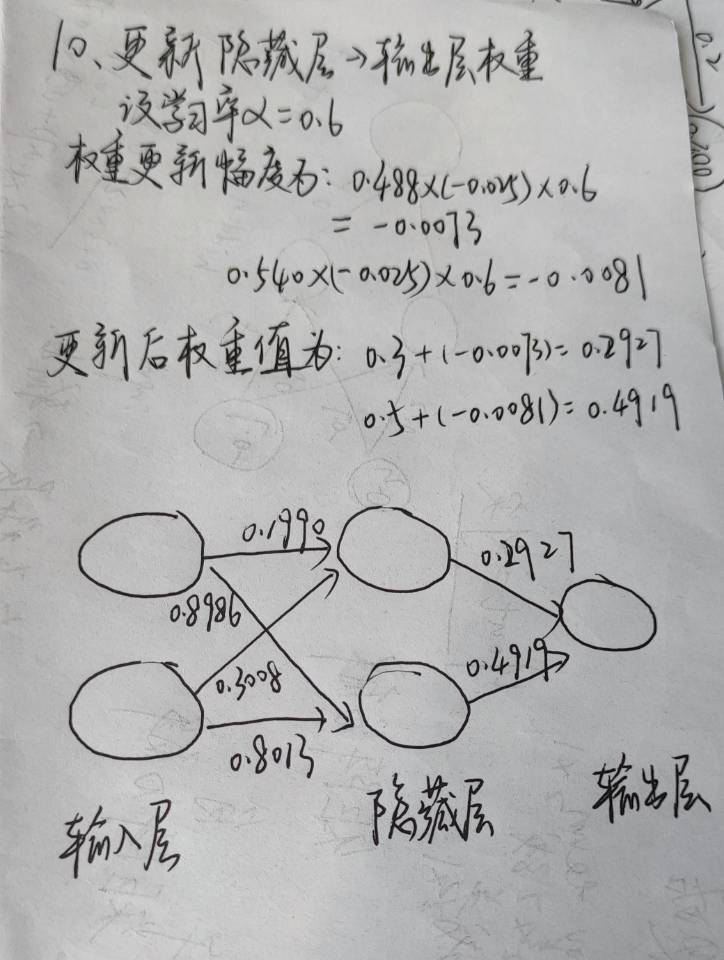 10、更新隐藏层→输出层权重
设学习率α=0.6
权重更新幅度为: 0.488×(-0.025)×0.6
= -0.0073
0.540×(-0.025)×0.6=-0.0081
更新后权重值为: 0.3+(-0.0073)=0.2927
0.5+(-0.0081)=0.4919
0.1990
0.2927
0.8986
0.3008
0.4919
0.8013
输入层 隐藏层 输出层